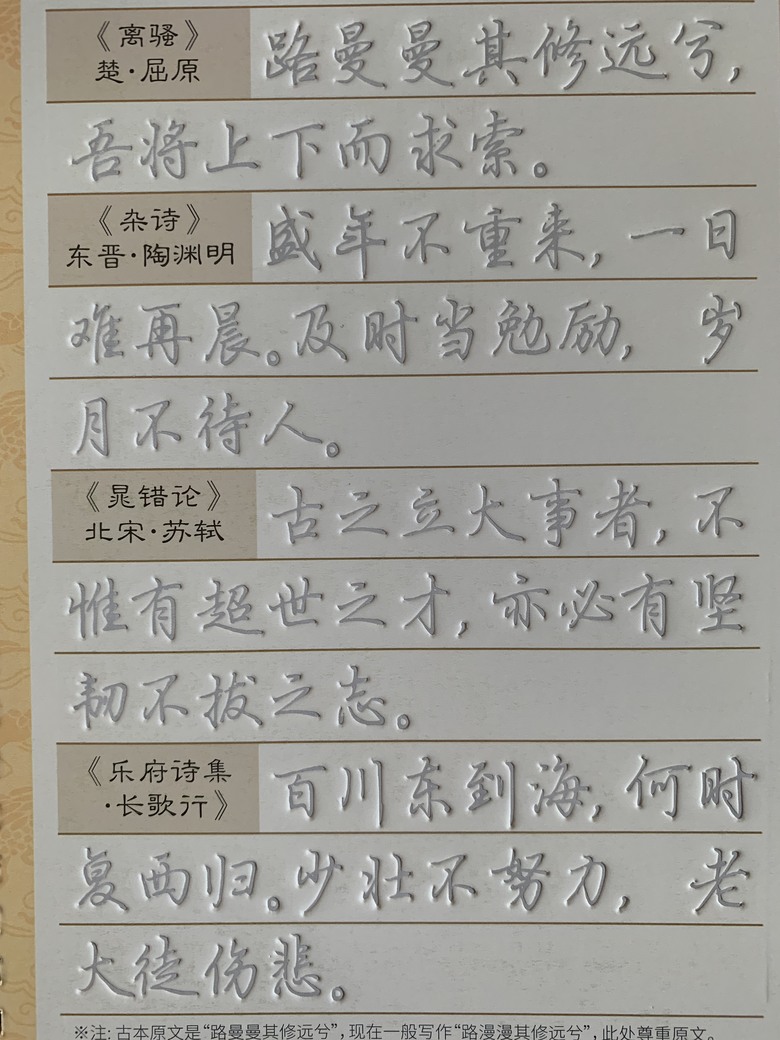 《离骚》
楚·屈原
路曼曼其修远兮，
吾将上下而求索。
《杂诗》
东晋·陶渊明
盛年不重来，一日
难再晨。及时当勉励，岁
月不待人。
《晁错论》
北宋·苏轼
古之立大事者，不
惟有超世之才，亦必有坚
韧不拔之志。
《乐府诗集
·长歌行》
百川东到海，何时
复西归。少壮不努力，老
大徒伤悲。
※注：古本原文是“路曼曼其修远兮”，现在一般写作“路漫漫其修远兮”，此处尊重原文。